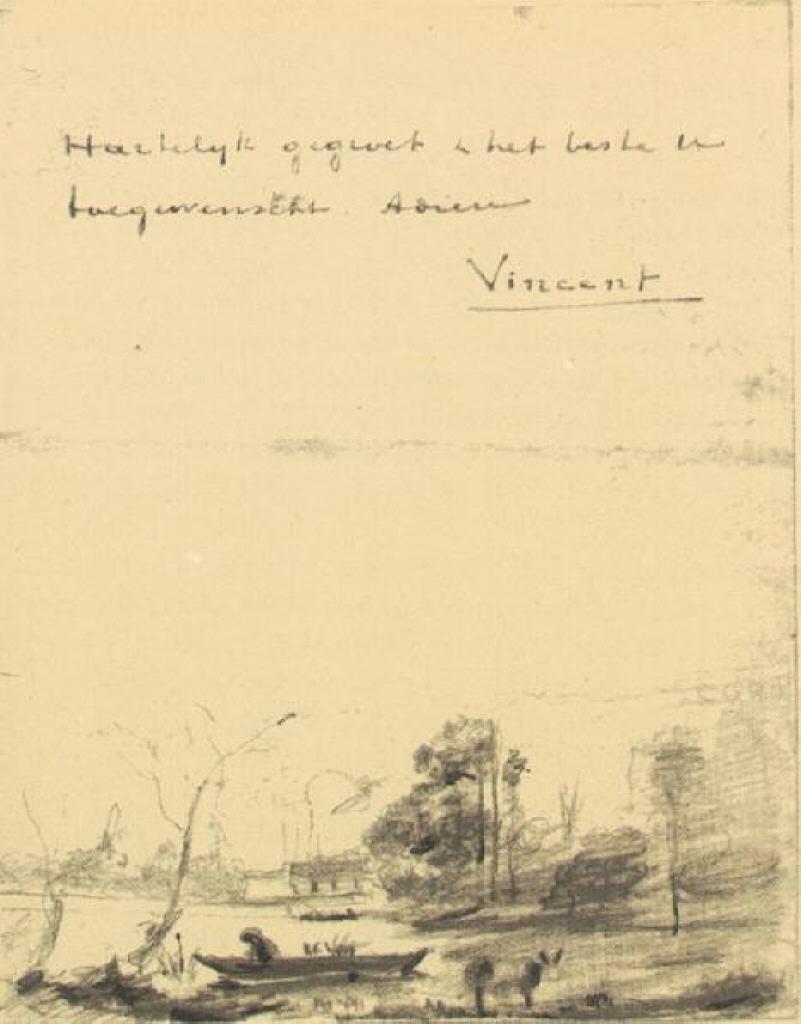 Hartelyk gegroet & het beste U
toegewenscht. Adieu
Vincent